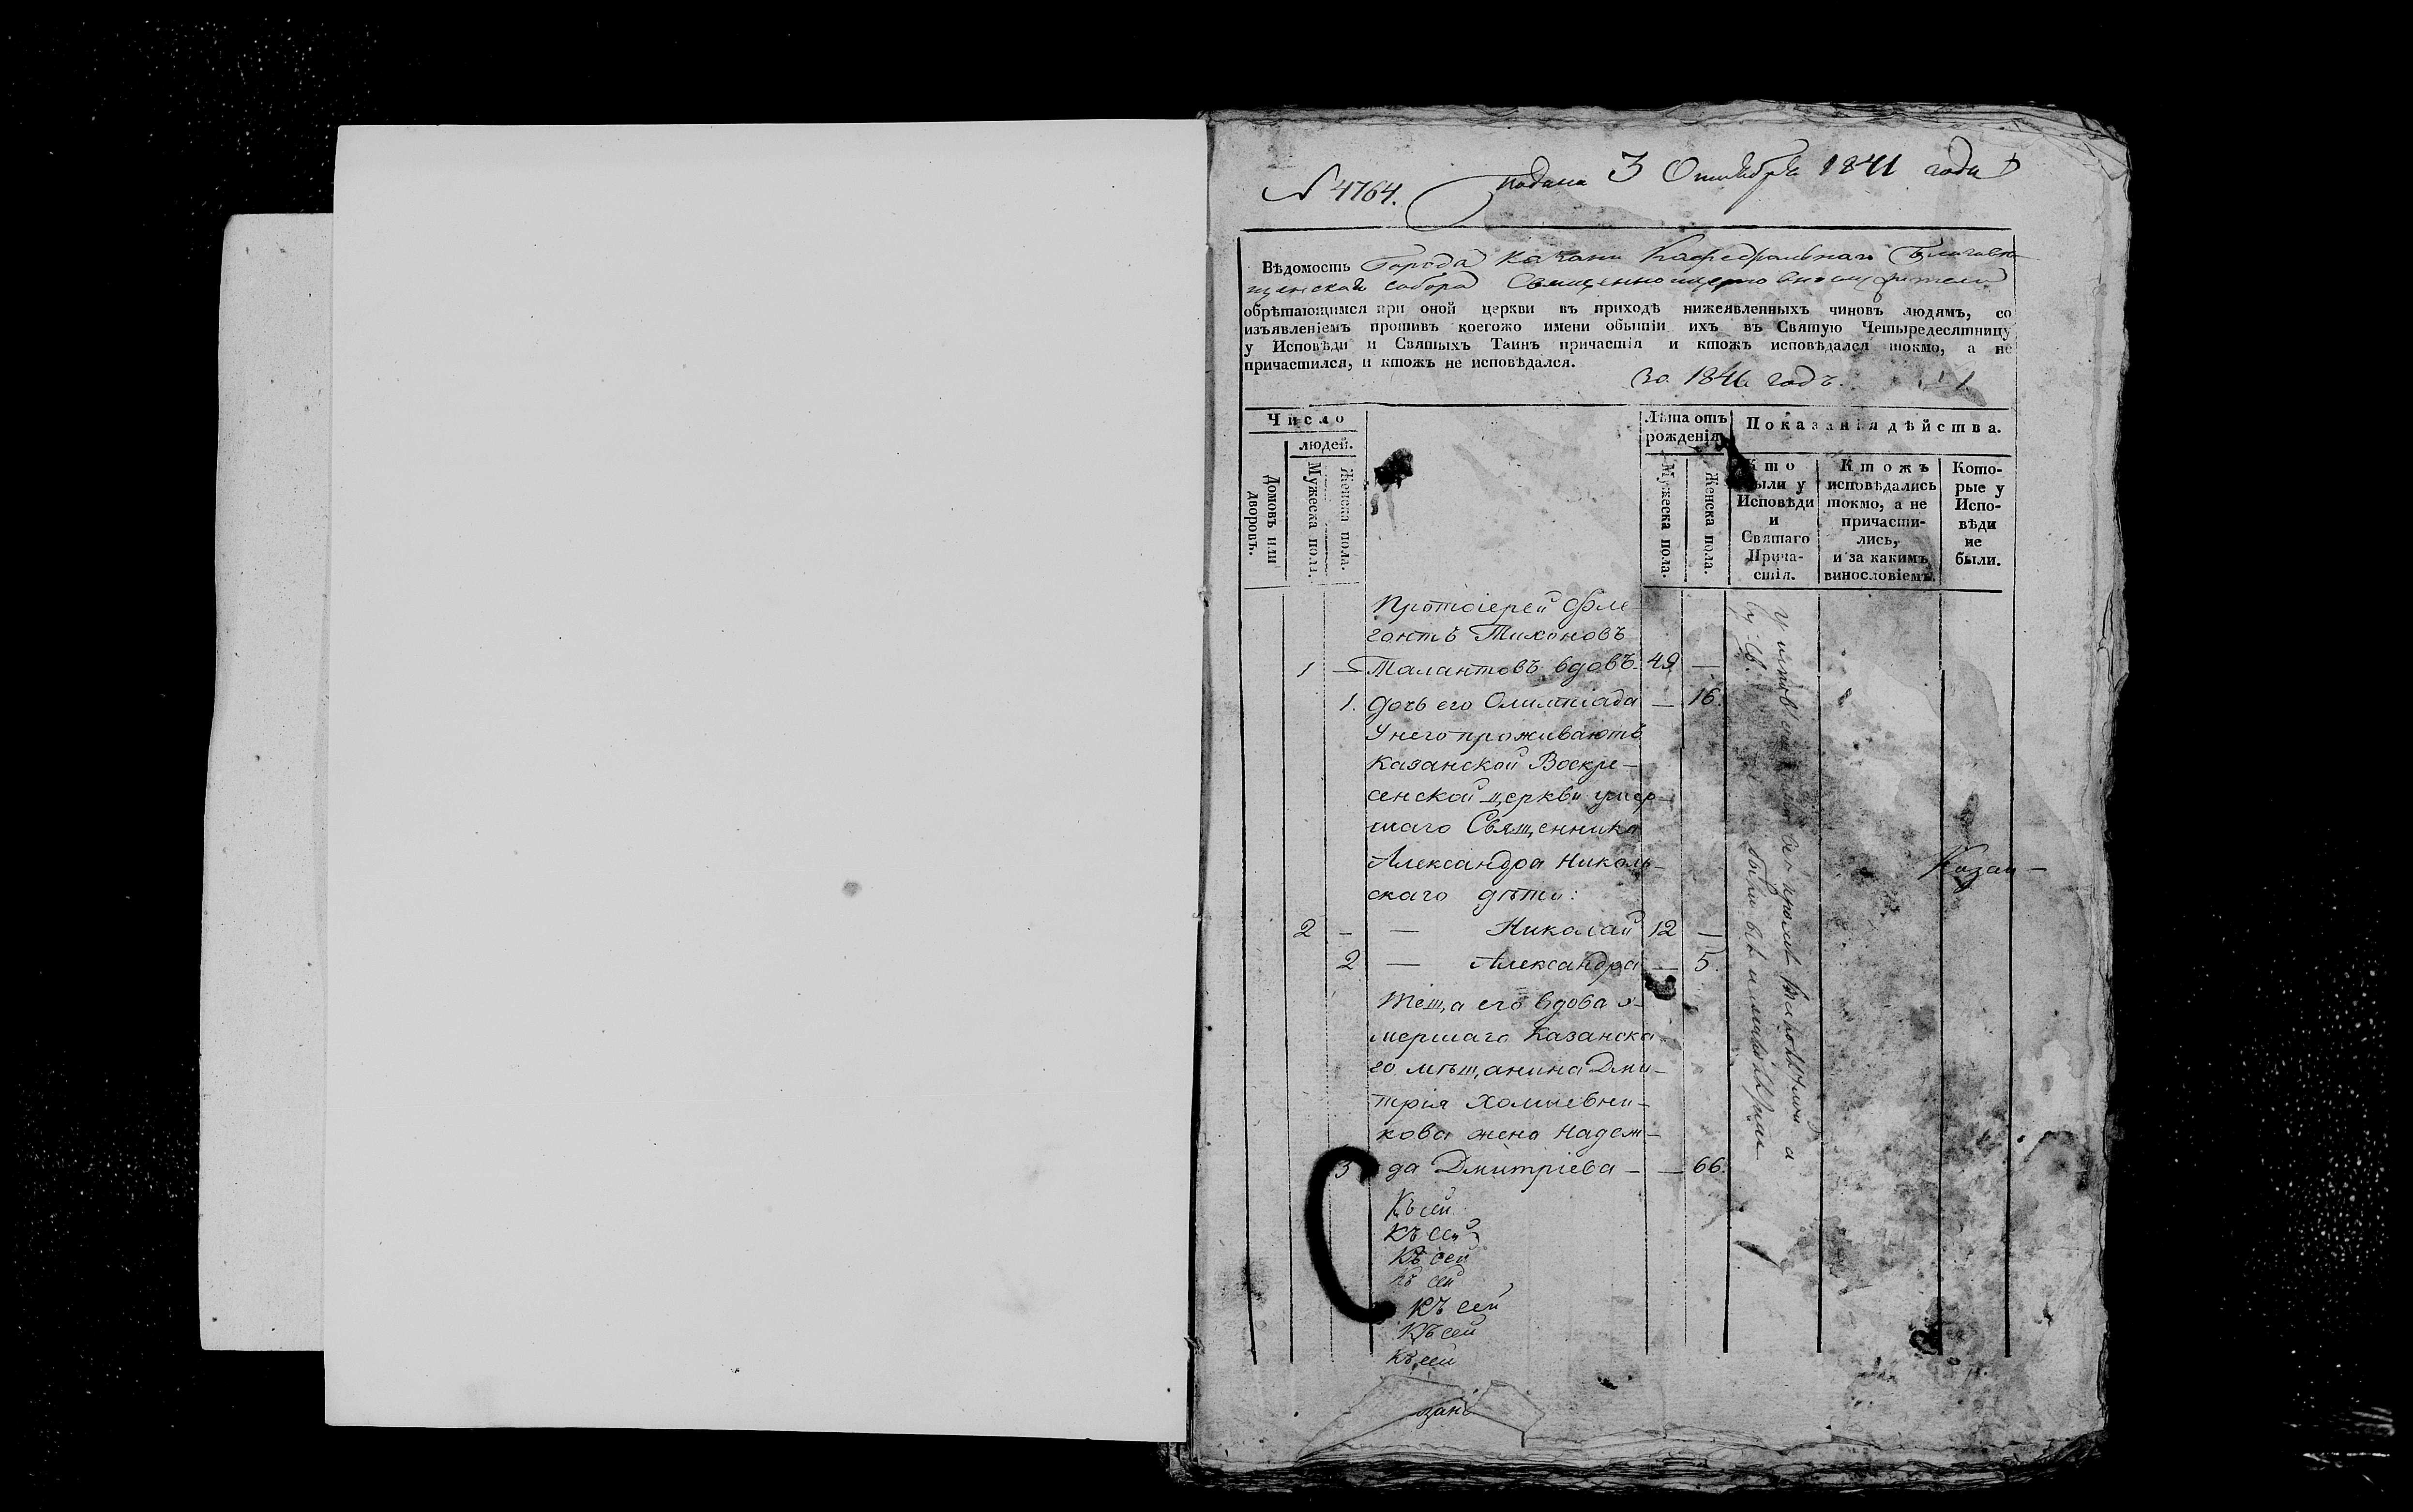 N 4764. подана 3 Октября 1841 года
Вѣдомость Города Казани Кафедральнаго Благовѣ-
щенскаго собора Священноцерковнослужители
обрѣтающимся при оной церкви въ приходѣ нижеявленныхъ чиновъ людямъ, со
изъявленіемъ противъ коегожо имени обытіи ихъ въ Святую Четыредесятницу
у Исповѣди и Святыхъ Таинъ причастія и ктожъ исповѣдался токмо, а не
причастился, и ктожъ не исповѣдался.
за 1841 годъ.
Число
людей.
Домовъ или
дворовъ.
Мужеска пола.
Женска пола.
Лѣта отъ
рожденія
Мужеска пола.
Женска пола.
Показанія дѣйства.
Кто
были у
Исповѣди
и
Святаго
Прича-
стія.
Ктожъ
исповѣдались
токмо, а не
причасти-
лись,
и за какимъ
винословіемъ.
Кото-
рые у
Испо-
вѣди
не
были.
Протоіерей Фле-
гонтъ Тихоновъ
1 — Талантовъ вдовъ. 49 —
1. дочь его Олимпіада — 16.
У него проживаютъ
Казанской Воскре-
сенской церкви умер-
шаго Священника
Александра Николь-
скаго дѣти:
2 - — Николай 12 —
2 — Александра — 5.
Теща его вдова у-
мершаго Казанска-
го мѣщанина Дми-
трія Холшевни-
кова жена Надеж-
3 да Дмитріева - — 66.
Казан-
Къ сей
Къ сей
Къ сей
Къ сей
Къ сей
Къ сей
Къ сей